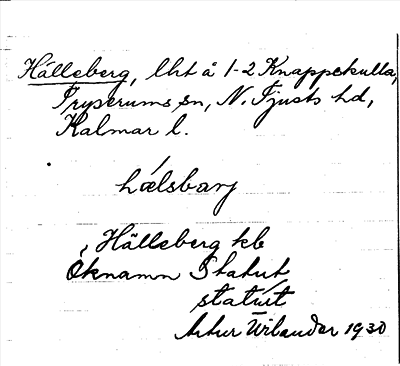 Hälleberg, lht å 1-2 Knappekulla,
Tryserums sn, N. Tjusts hd,
Kalmar l.
hælsbarj
Hälleberg kb
Öknamn Statut
statut
Artur Wilander 1930